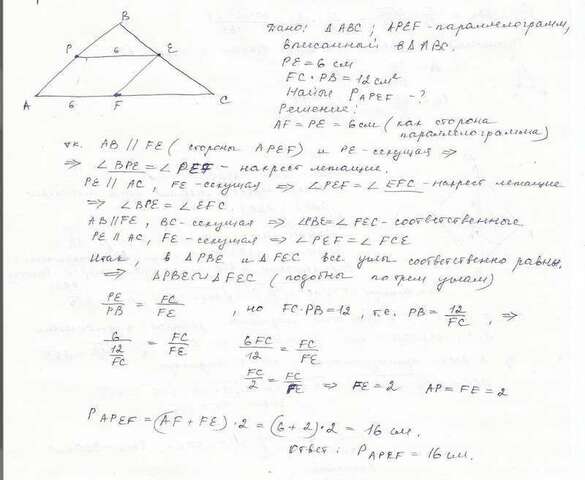 B
P 6 E
A 6 F C
Дано: ΔABC; APEF - параллелограмм,
вписанный в ΔABC.
PE = 6 см
FC · PB = 12 см²
Найти P APEF - ?
Решение:
AF = PE = 6 см (как сторона
параллелограмма)
т.к. AB || FE (стороны APEF) и PE - секущая ⇒
⇒ ∠BPE = ∠PEF - накрест лежащие.
PE || AC, FE - секущая ⇒ ∠PEF = ∠EFC - накрест лежащие
⇒ ∠BPE = ∠EFC.
AB || FE, BC - секущая ⇒ ∠PBE = ∠FEC - соответственные
PE || AC, FE - секущая ⇒ ∠PEF = ∠FCE
Итак, в ΔPBE и ΔFEC все углы соответственно равны,
⇒ ΔPBE ∾ ΔFEC (подобны по трем углам)
PE/PB = FC/FE, но FC·PB = 12, т.е. PB = 12/FC, ⇒
6/(12/FC) = FC/FE 6FC/12 = FC/FE
FC/2 = FC/FE ⇒ FE = 2 AP = FE = 2
P APEF = (AF + FE)·2 = (6+2)·2 = 16 см.
Ответ: P APEF = 16 см.